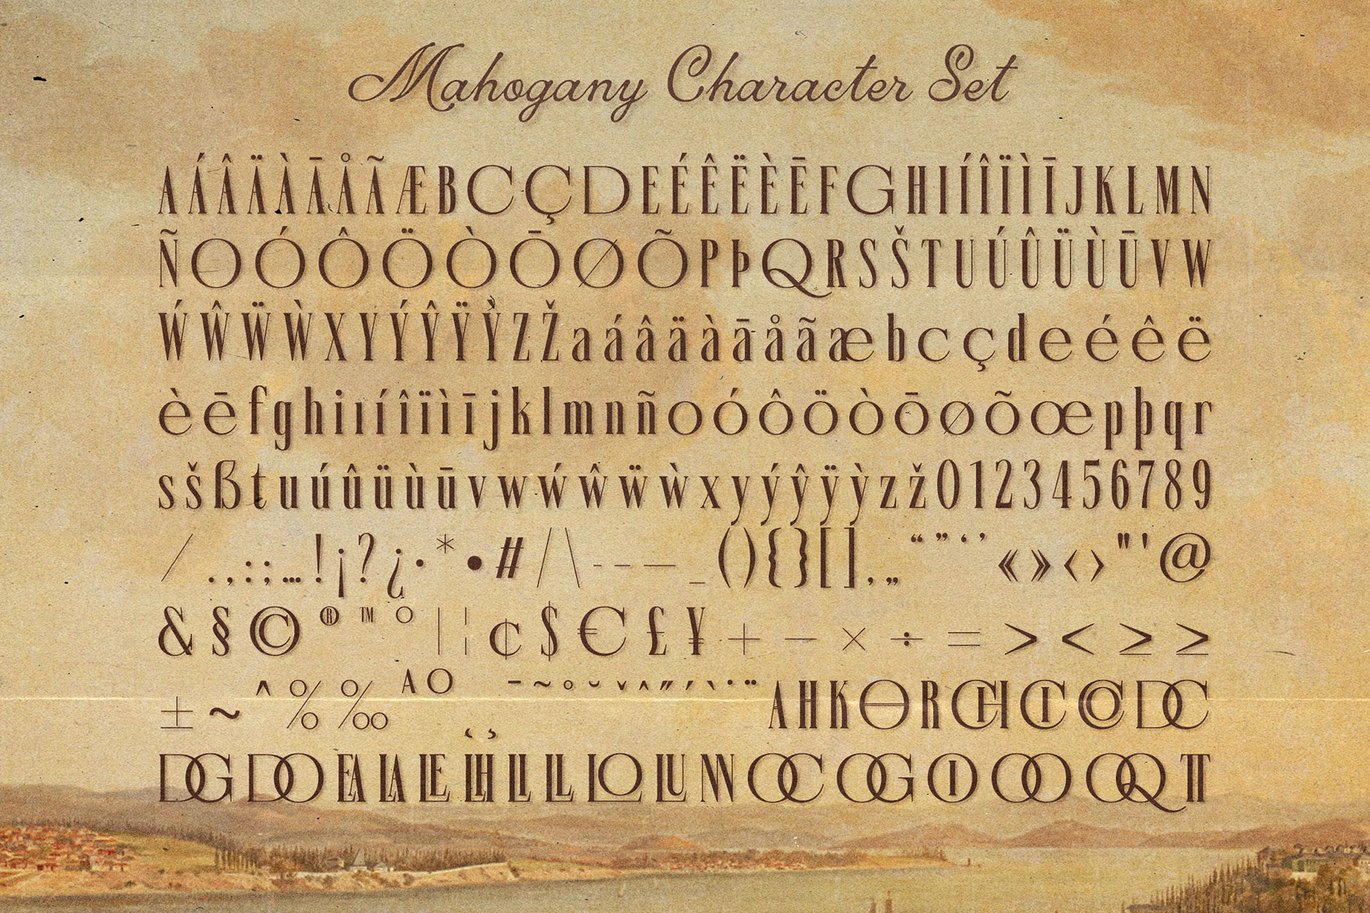 Mahogany Character Set
AÁÂÄÀĀÅÃÆBCÇDEÉÊËÈĒFGHIÍÎÏÌĪJKLMN
ÑOÓÔÖÒŌØÕPÞQRSŠTUÚÛÜÙŪVW
ẂŴẄẀXYÝŶŸỲZŽaáâäàāåãæbcçdeéêë
èēfghiıíîïìījklmnñoóôöòōøõœpþqr
sšßtuúûüùūvwẃŵẅẁxyýŷÿỳzž0123456789
⁄.,:;…!¡?¿·*•#/\-–—_(){}[]‚„“”‘’«»‹›"'@
&§©®™°|¦¢$€£¥+−×÷=><≥≥
±~^%‰ªº¯˜˚˘ˇˆ˝´`˙¨¸˛AHKORCHCICODC
DGDOEALALELHLLLLLOLUNOCOGOIOOOQTT